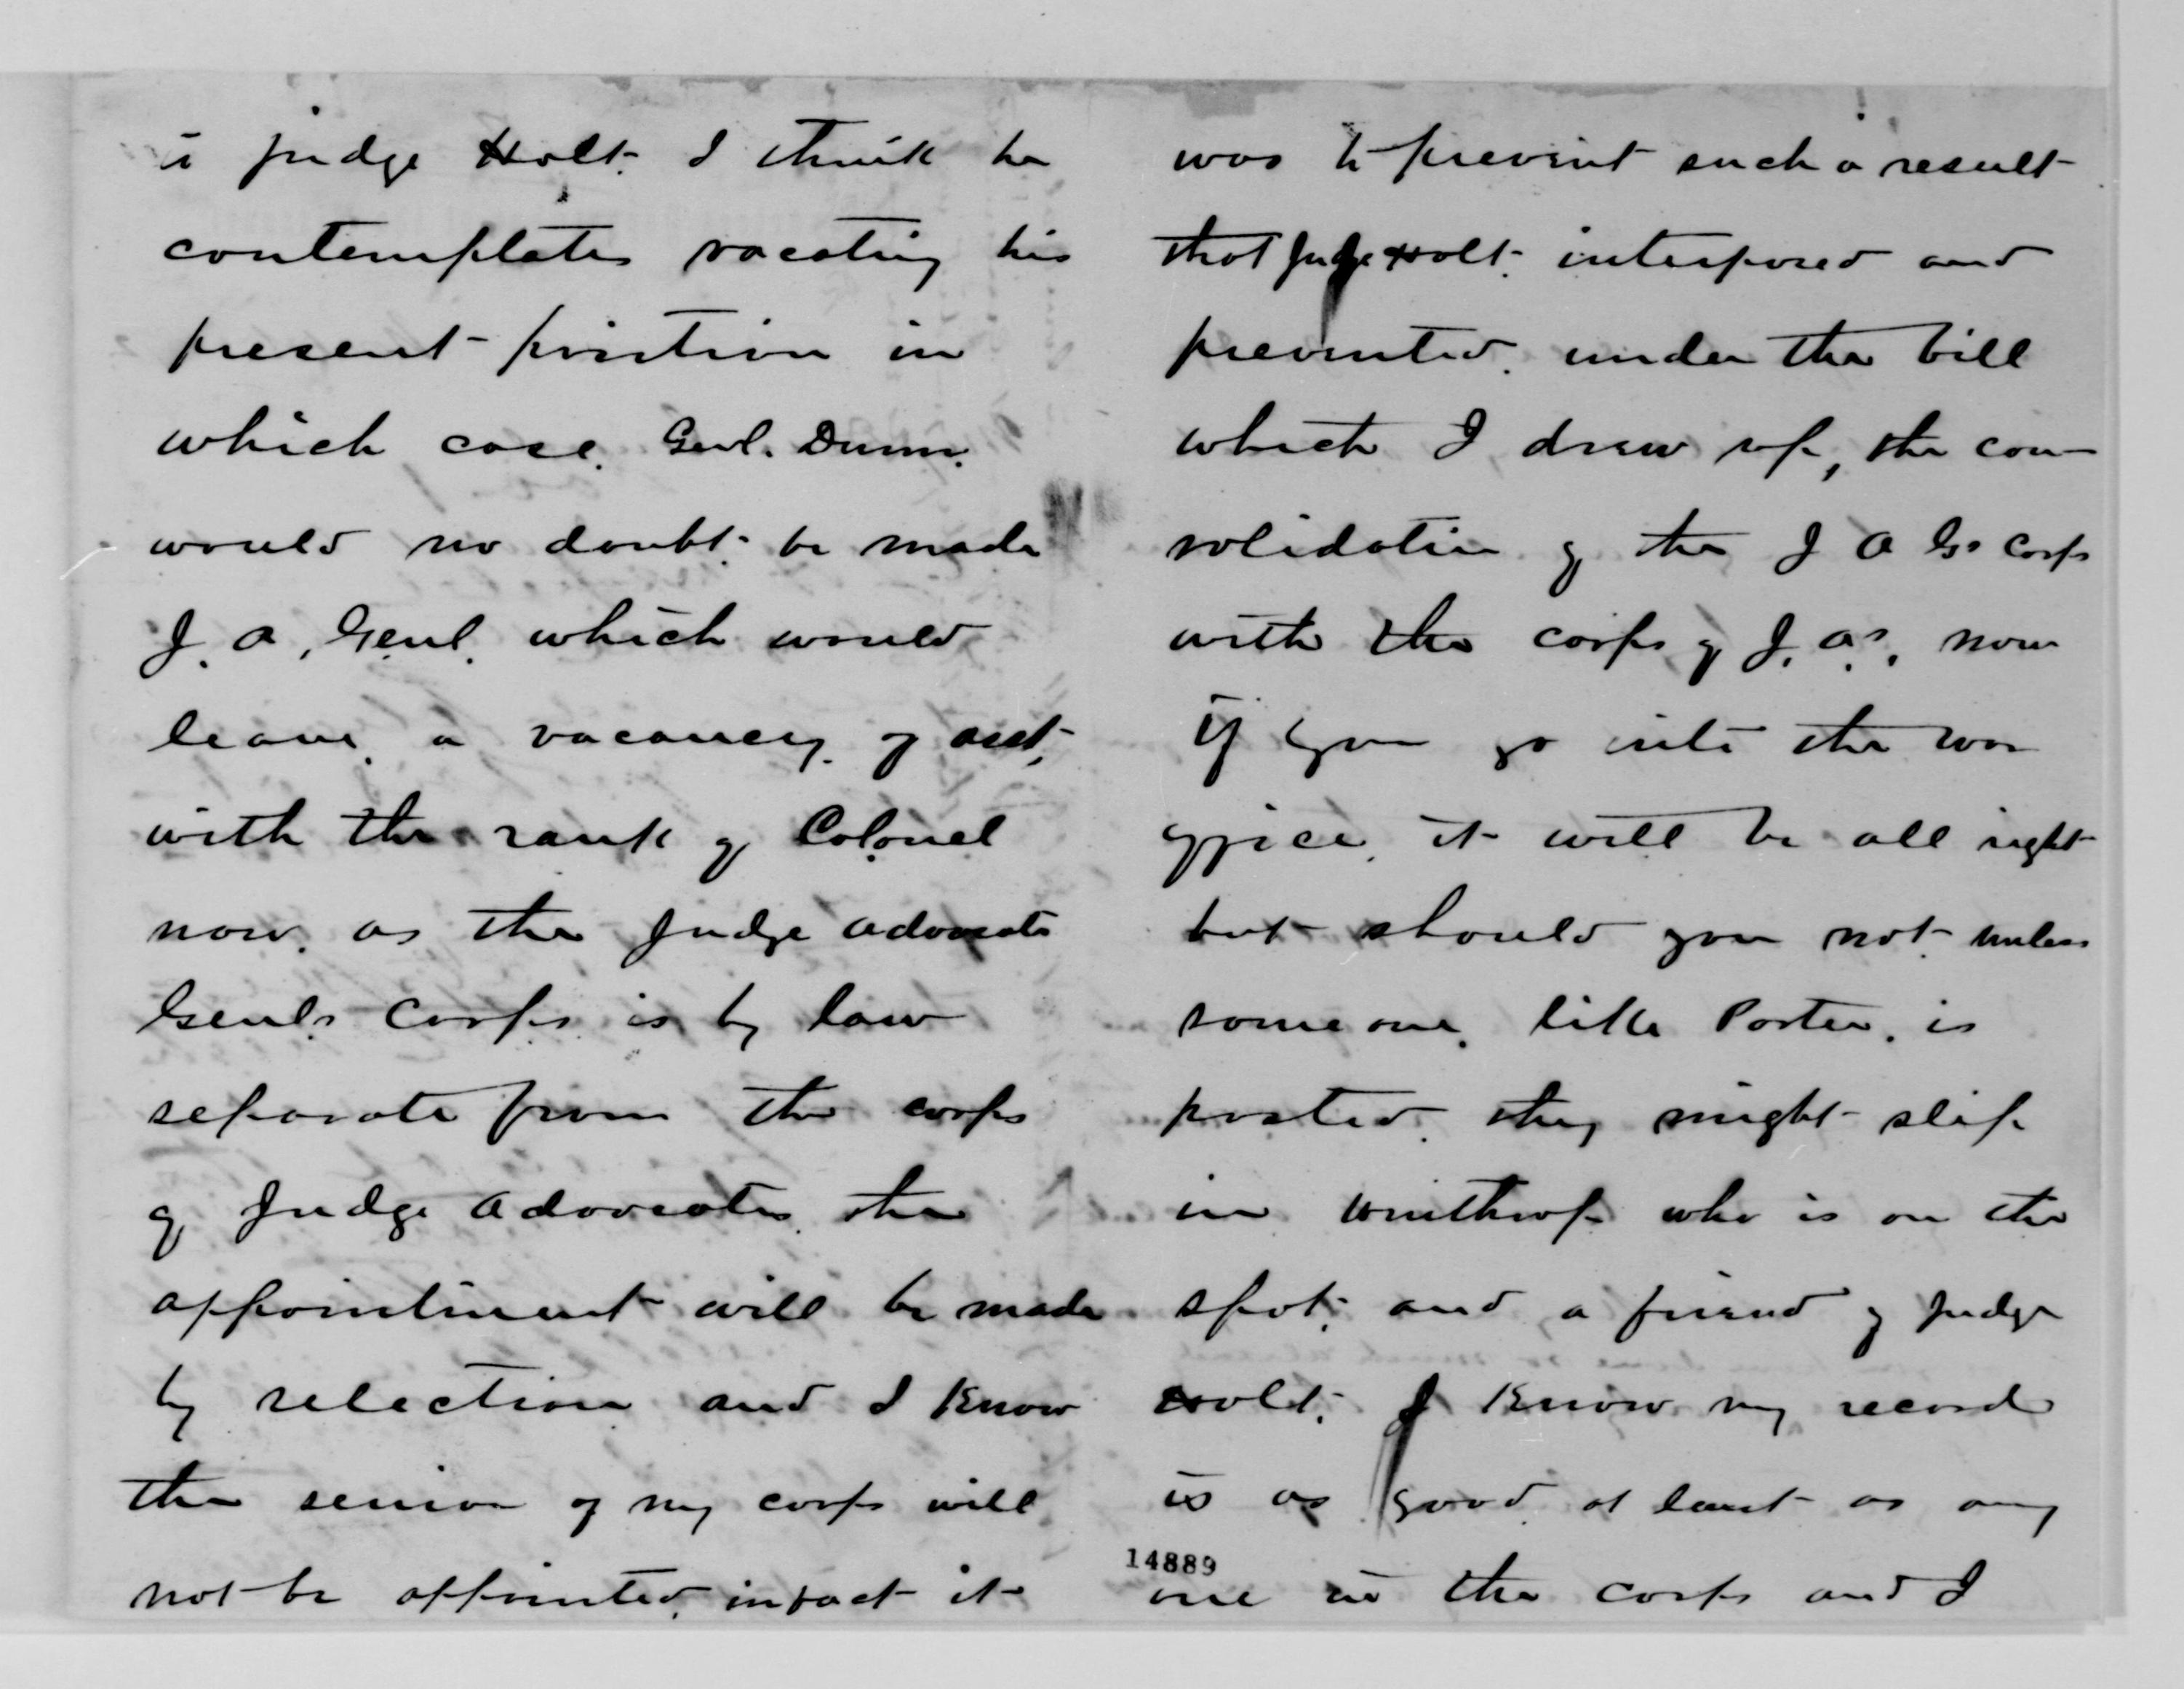 is Judge Holt. I think he
contemplates vacating his
present position in
which case. Genl. Dunn.
would no doubt be made
J. A. Genl. which would
leave a vacancy of asst.
with the rank of Colonel
now, as the Judge Advocate
Genls Corps is by law
separate from the corps
of Judge Advocates, the
appointment will be made
by selection and I know
the senior of my corps will
not be appointed, in fact it
was to prevent such a result
that Judge Holt interposed and
prevented, under the bill
which I drew up, the con-
solidation of the J A Gs Corps
with the corps of J. As. now
if you go into the war
office, it will be all right
but should you not unless
some one, like Porter, is
posted, they might slip
in Winthrop who is on the
spot, and a friend of Judge
Holt. I know my record
is as good at least as any
one in the corps and I
14889